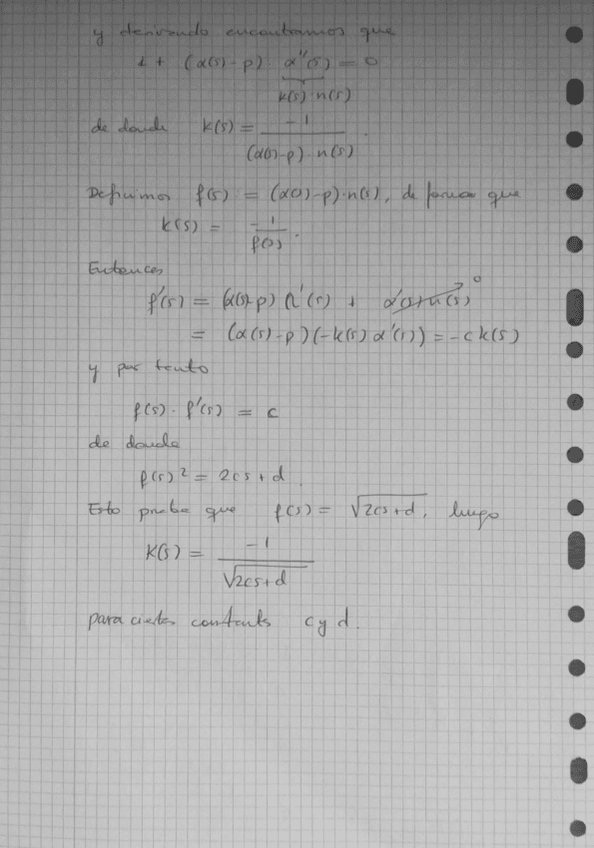 y derivando encontramos que
1 + (α(s) - p) · α''(s) = 0
k(s) · n(s)
de donde k(s) = -1 / (α(s)-p) · n(s) .
Definimos f(s) = (α(s)-p) · n(s), de forma que
k(s) = -1 / f(s) .
Entonces
f'(s) = (α(s)-p) n'(s) + α'(s) · n(s) 0
= (α(s)-p)(-k(s) α'(s)) = -c k(s)
y por tanto
f(s) · f'(s) = c
de donde
f(s)² = 2cs + d .
Esto prueba que f(s) = √2cs+d , luego
k(s) = -1 / √2cs+d
para ciertas constantes c y d.